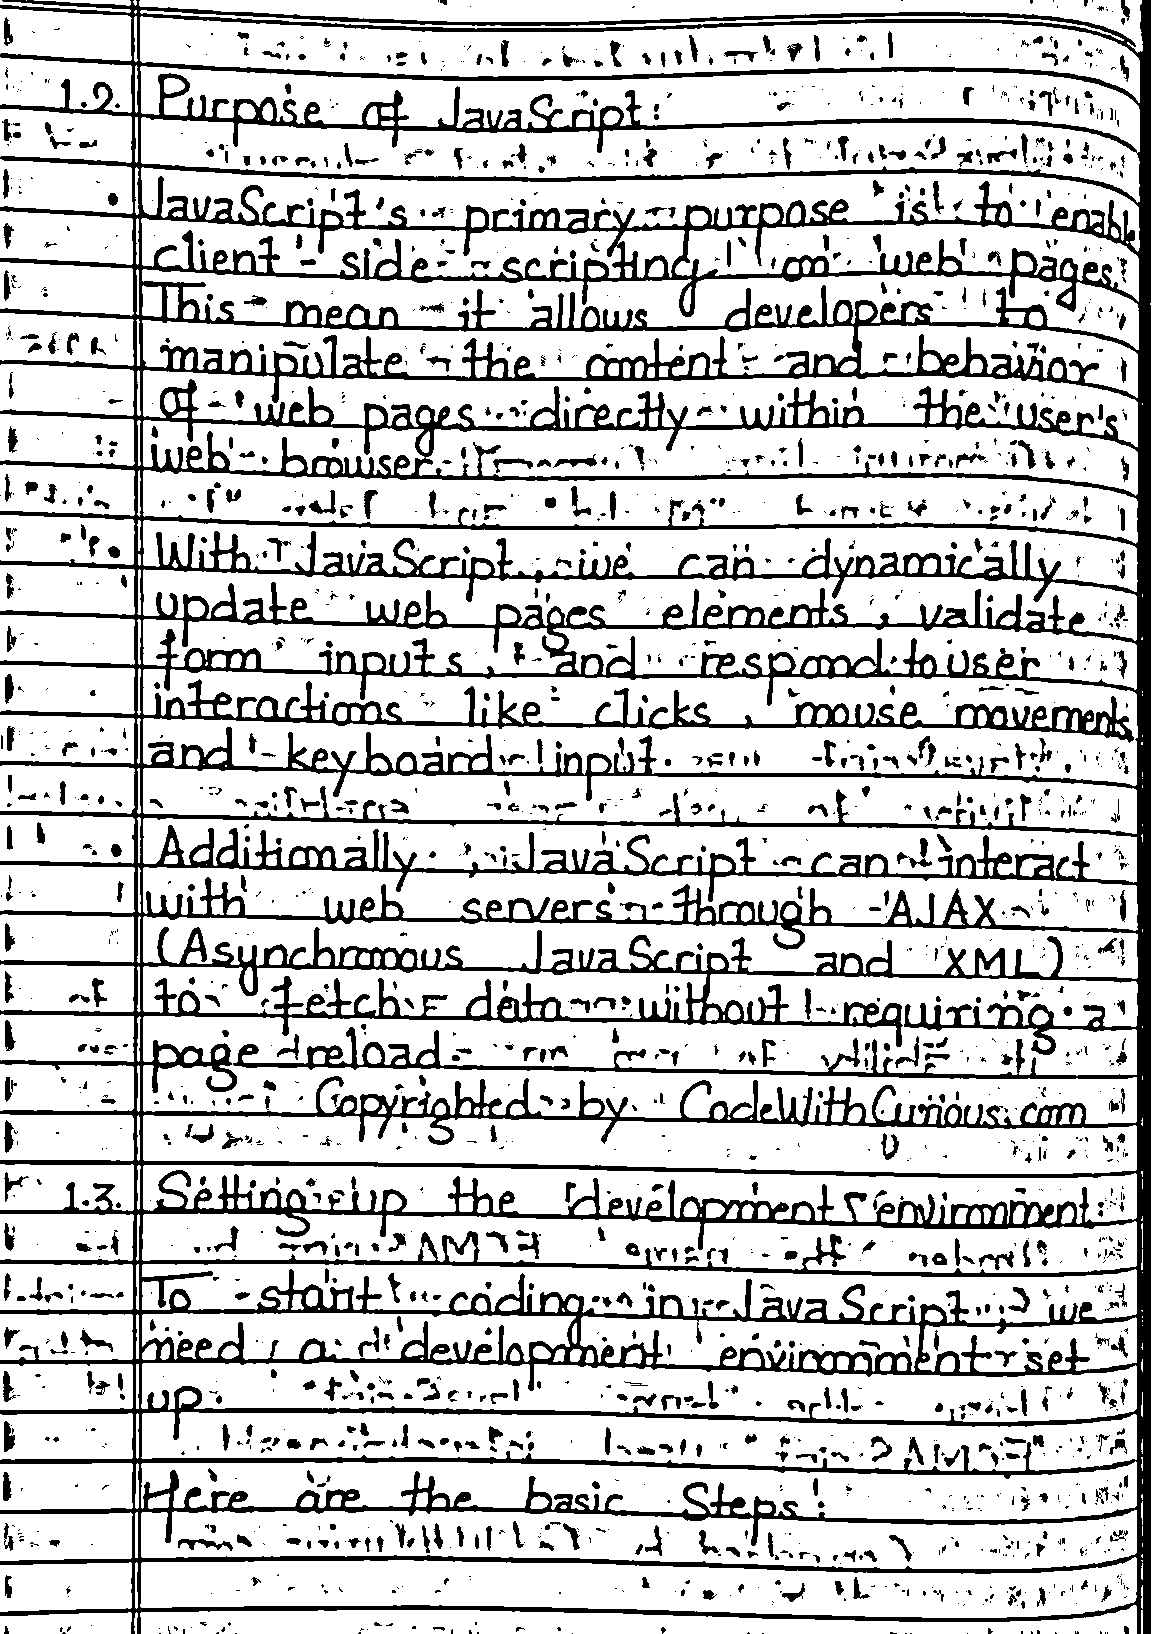 1.2. Purpose of JavaScript:
• JavaScript's primary purpose is to enable
client - side scripting on web pages.
This mean it allows developers to
manipulate the content and behavior
of web pages directly within the user's
web browser.
• With JavaScript, we can dynamically
update web pages elements, validate
form inputs, and respond to user
interactions like clicks, mouse movements
and keyboard input.
• Additionally, JavaScript can interact
with web servers through AJAX
(Asynchronous JavaScript and XML)
to fetch data without requiring a
page reload.
Copyrighted by CodeWithCurious.com
1.3. Setting up the development environment:
To start coding in JavaScript, we
need a development environment set
up.
Here are the basic Steps: